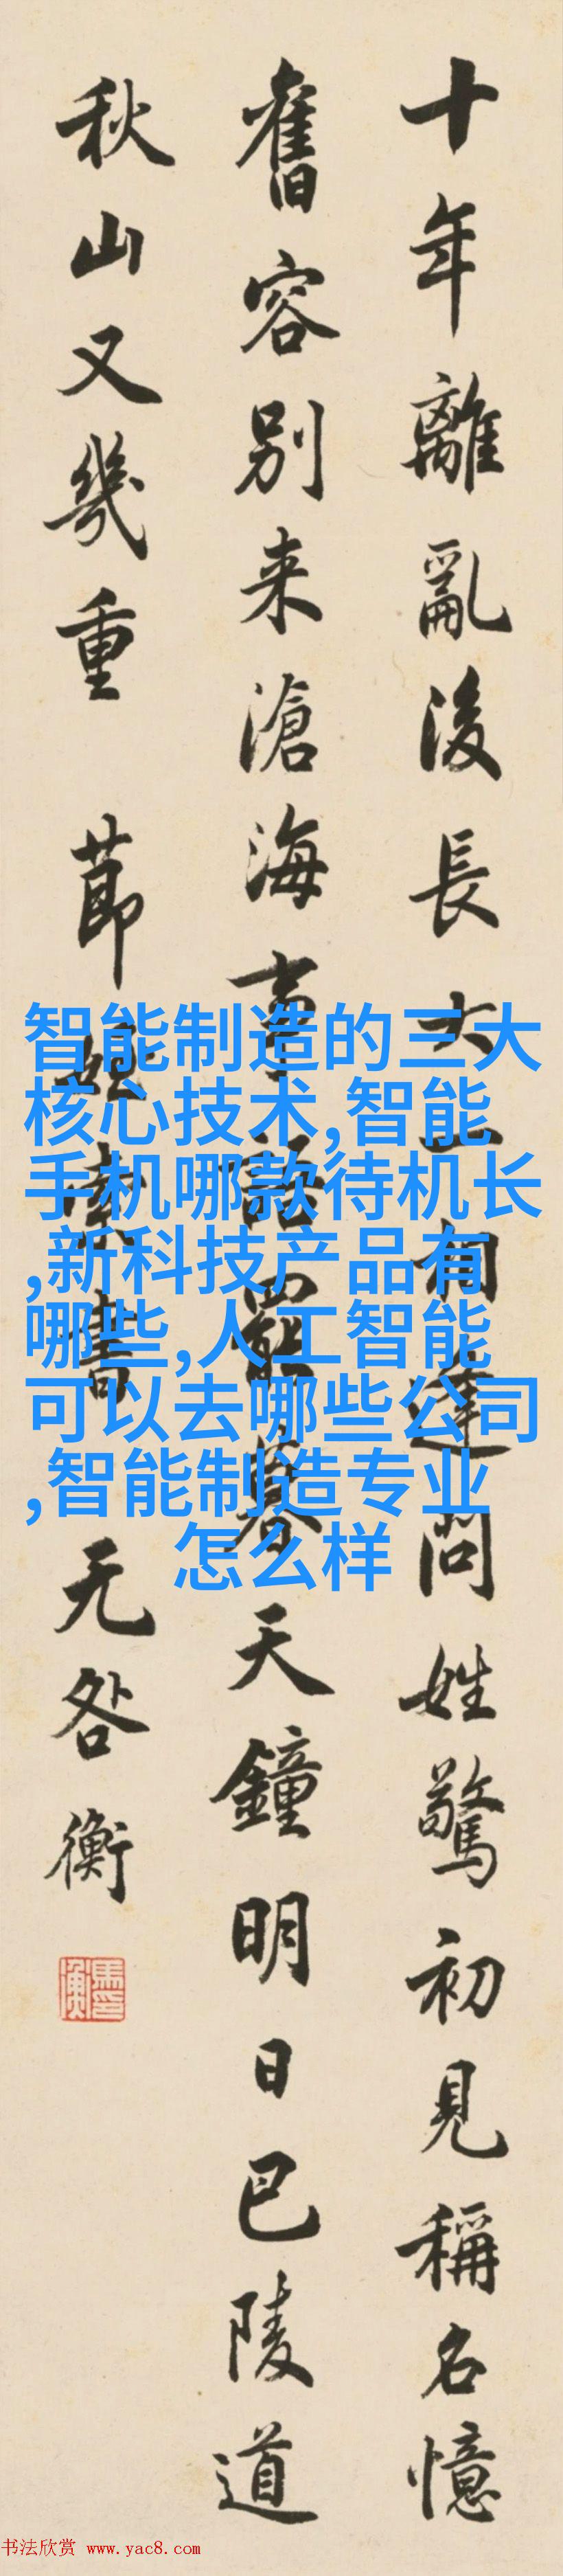 十年離亂後長大一相逢問姓驚初見稱名憶
舊容別来滄海事語罷暮天鐘明日巴陵道
秋山又幾重 節索書 无咎衡
馬衡印
智能制造的三大
核心技术,智能
手机哪款待机长
,新科技产品有
哪些,人工智能
可以去哪些公司
,智能制造专业
怎么样
书法欣赏 www.yac8.com